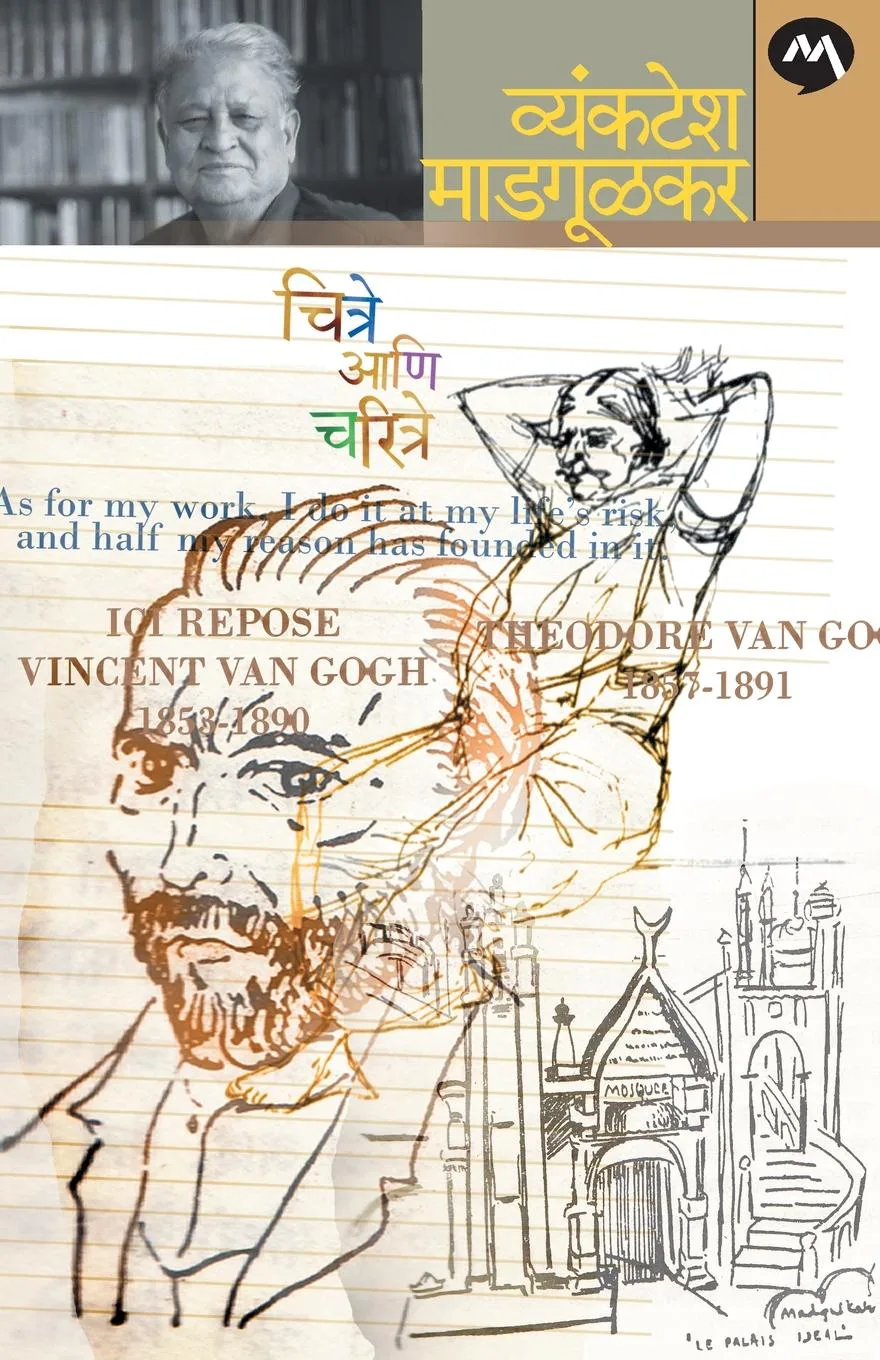 व्यंकटेश
माडगूळकर
चित्रे
आणि
चरित्रे
As for my work, I do it at my life's risk,
and half my reason has founded in it.
ICI REPOSE
VINCENT VAN GOGH
1853-1890
THEODORE VAN GO
1857-1891
MOSQUEE
Madgulkar
"LE PALAIS IDEAL"